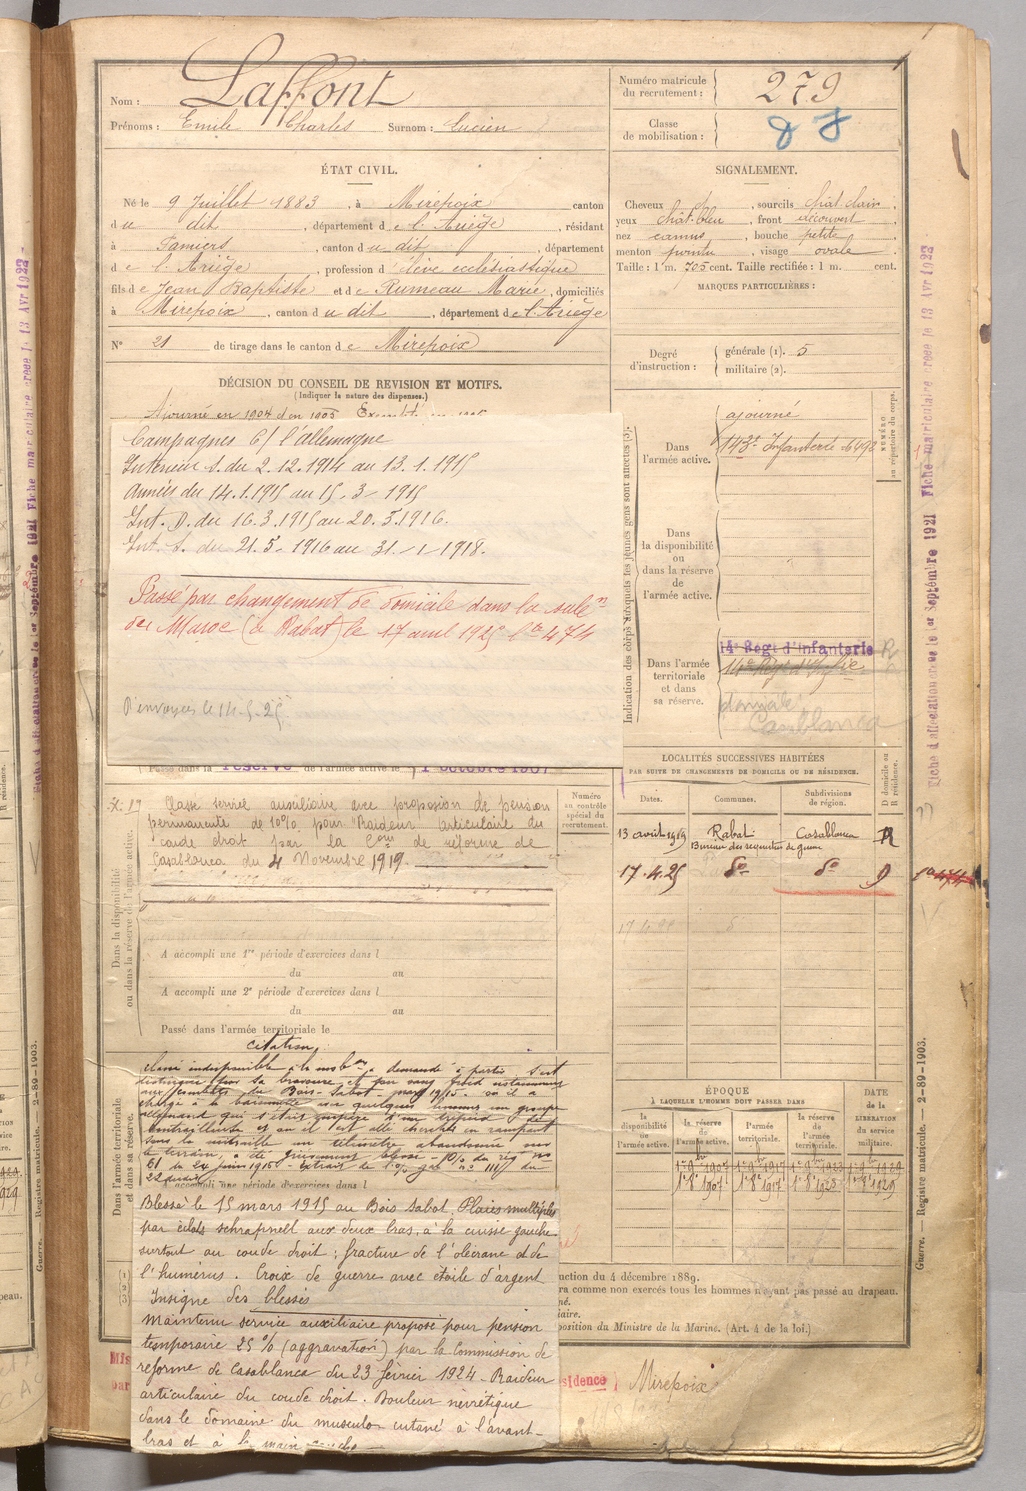 Nom : Laffont
Prénoms : Emile Charles Surnom : Lucien
Numéro matricule du recrutement : 279
Classe de mobilisation :
ÉTAT CIVIL.
Né le 9 Juillet 1883, à Mirepoix canton
du dit, département de l'Ariège, résidant
à Pamiers, canton du dit, département
de l'Ariège, profession d'élève ecclésiastique
fils de Jean Baptiste et de Rumeau Marie, domiciliés
à Mirepoix, canton du dit, département de l'Ariège
N° 21 de tirage dans le canton de Mirepoix
SIGNALEMENT.
Cheveux, sourcils chât. clair
yeux chât. bleu, front découvert
nez camus, bouche petite
menton pointu, visage ovale
Taille : 1 m. 705 cent. Taille rectifiée : 1 m. cent.
MARQUES PARTICULIÈRES :
Degré d'instruction : générale (1). 5
militaire (2).
DÉCISION DU CONSEIL DE REVISION ET MOTIFS.
(Indiquer la nature des dispenses.)
Ajourné en 1904 et en 1905
Campagnes C/ l'Allemagne
Intérieur S. du 2.12.1914 au 13.1.1915
Armées du 14.1.1915 au 15.3.1915
Int. D. du 16.3.1915 au 20.5.1916.
Int. S. du 21.5.1916 au 31.1.1918.
Passé par changement de domicile dans la sub.on
du Maroc (à Rabat) le 17 avril 1925 Ln 474
D envoyés le 14.5.25
Passé dans la réserve de l'armée active le 1 octobre 1907
Indication des corps auxquels les jeunes gens sont affectés (3).
NUMÉRO au répertoire du corps.
Dans l'armée active.
ajourné
143e Infanterie
Dans la disponibilité ou dans la réserve de l'armée active.
Dans l'armée territoriale et dans sa réserve.
14e Régt d'Infanterie
domicile
Casablanca
LOCALITÉS SUCCESSIVES HABITÉES
PAR SUITE DE CHANGEMENTS DE DOMICILE OU DE RÉSIDENCE.
Dates. Communes. Subdivisions de région. D domicile ou R résidence.
13 avril 1919 Rabat Casablanca R
17.4.25 do do D
Numéro au contrôle spécial du recrutement.
Dans la disponibilité ou dans la réserve de l'armée active.
Classé service auxiliaire avec proposition de pension
permanente de 10% pour "Raideur" articulaire du
coude droit par la Con de réforme de
Casablanca du 4 Novembre 1919.
A accompli une 1re période d'exercices dans l
du au
A accompli une 2e période d'exercices dans l
du au
Passé dans l'armée territoriale le
Dans l'armée territoriale et dans sa réserve.
citation
Classé indisponible à la mobon a demandé à partir s'est
distingué par sa bravoure et par sang froid notamment
aux combats du Bois-Sabot mars 1915 où il a
chargé à la baïonnette avec quelques hommes un groupe
allemand qui s'était emparé
mitrailleuse et où il est allé chercher en rampant
sous la mitraille un télémètre abandonné sur
le terrain, a été grièvement blessé
61 du 24 juin 1915
période d'exercices dans l
Blessé le 15 mars 1915 au Bois Sabot. Plaies multiples
par éclats schrapnell aux deux bras, à la cuisse gauche
surtout au coude droit ; fracture de l'olécrane et de
l'humérus. Croix de guerre avec étoile d'argent
Insigne des blessés
Maintenu service auxiliaire proposé pour pension
temporaire 25% (aggravation) par la Commission de
réforme de Casablanca du 23 février 1924 - Raideur
articulaire du coude droit. Douleur névritique
dans le domaine du musculo cutané à l'avant-
bras et à la main
ÉPOQUE
À LAQUELLE L'HOMME DOIT PASSER DANS
la disponibilité de l'armée active. la réserve de l'armée active. l'armée territoriale. la réserve de l'armée territoriale.
DATE de la LIBÉRATION du service militaire.
1er 8e 1907 1er 8e 1917 1er 8e 1923 1er 8e 1929
ction du 4 décembre 1889.
ra comme non exercés tous les hommes n'ayant pas passé au drapeau.
position du Ministre de la Marine. (Art. 4 de la loi.)
sidence Mirepoix
Guerre. — Registre matricule. — 2-89-1903.
Fiche d'affectation créée le 1er Septembre 1921 Fiche matriculaire créée le 13 Avr 1922